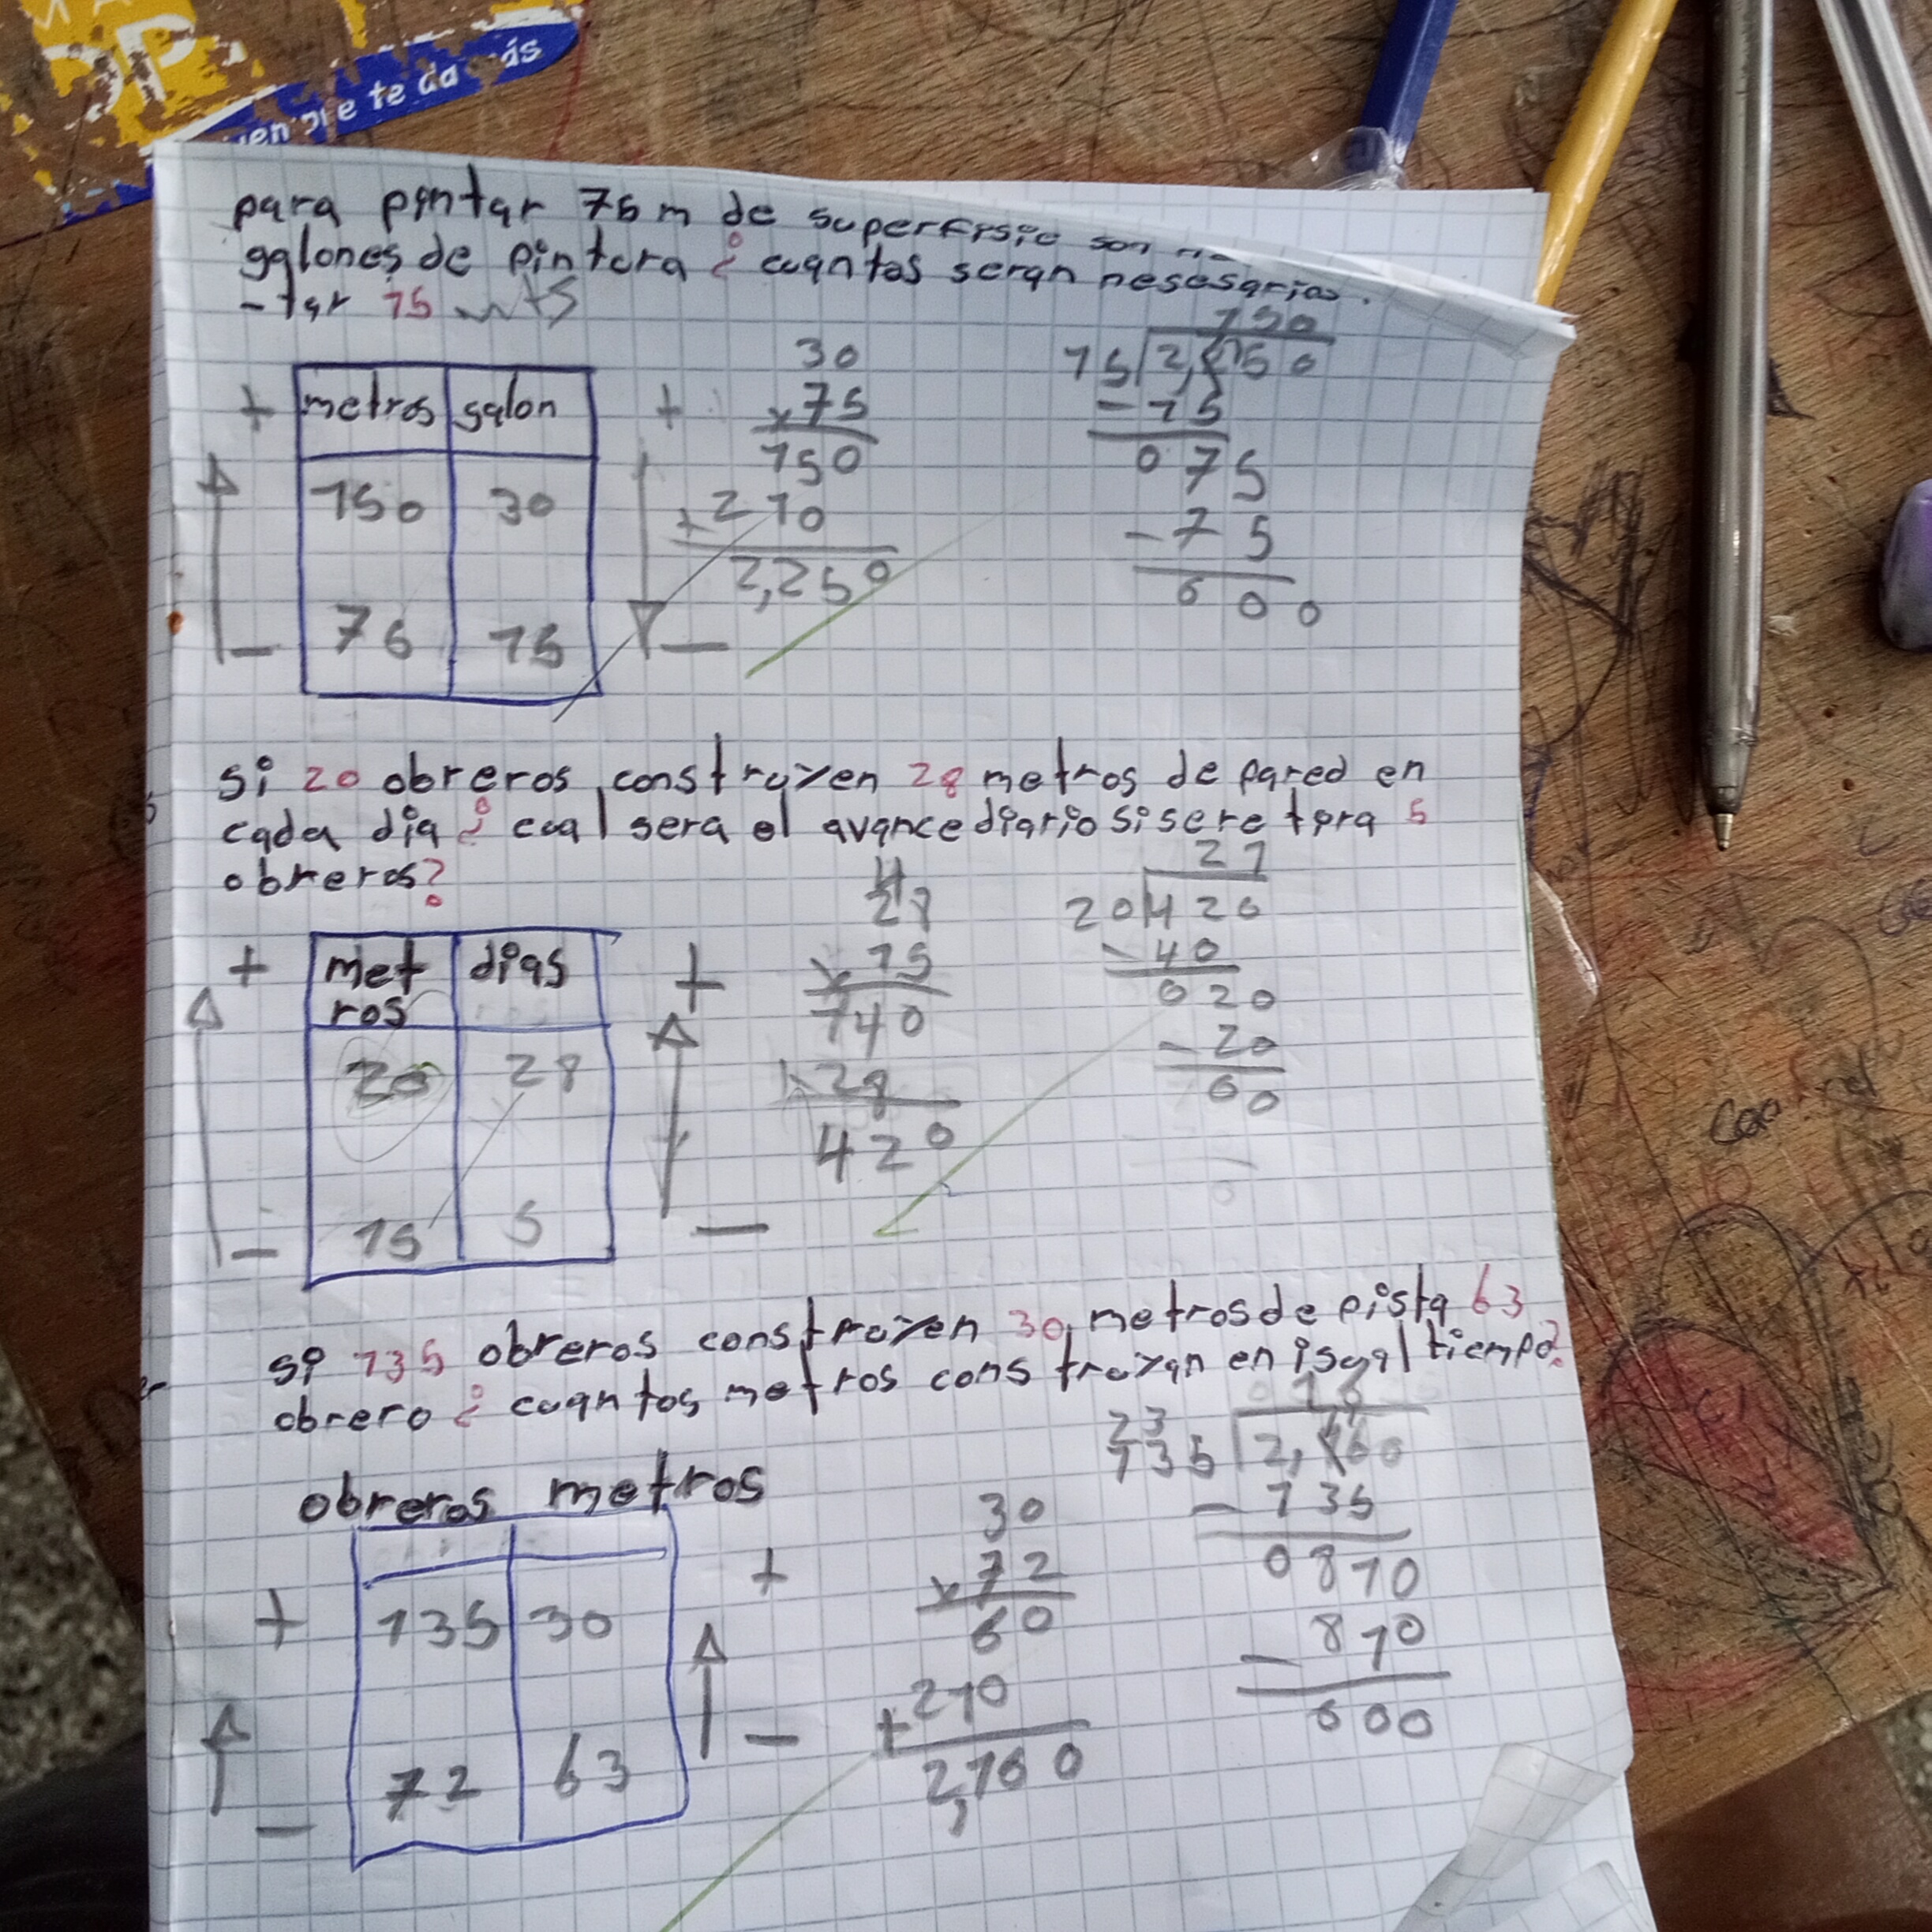 te da ás
para pintar 75 m de superfisie son
galones de pintura ¿ cuantos seran nesesarios
-tar 15 mts
metros galon
150 30
75 15
30
x 75
150
+ 210
2,250
150
15 2,250
- 15
075
- 75
000
si 20 obreros construyen 28 metros de pared en
cada dia ¿ cual sera el avance diario si se retira 5
obreros?
met dias
ros
20 28
15 5
4
28
x 15
140
+ 28
420
21
20 420
- 40
020
- 20
00
si 135 obreros construyen 30 metros de pista 63
obrero ¿ cuantos metros construyan en isual tiempo?
obreros metros
135 30
72 63
30
x 72
60
+ 210
2,160
016
23
135 2,160
- 135
0810
- 810
000